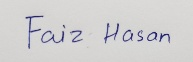 Faiz Hasan